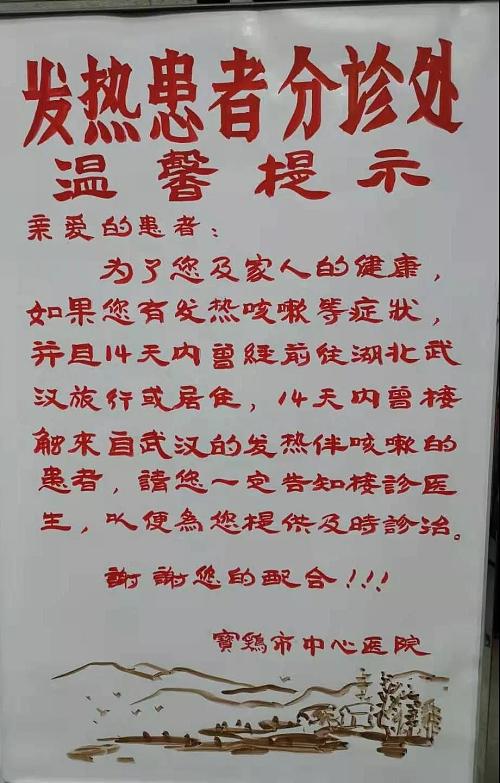 发热患者分诊处
温馨提示
亲爱的患者：
为了您及家人的健康，
如果您有发热咳嗽等症狀，
并且14天内曾经前往湖北武
汉旅行或居住，14天内曾接
触来自武汉的发热伴咳嗽的
患者，請您一定告知接診医
生，以便為您提供及時診治。
謝謝您的配合！！！
寶鷄市中心医院